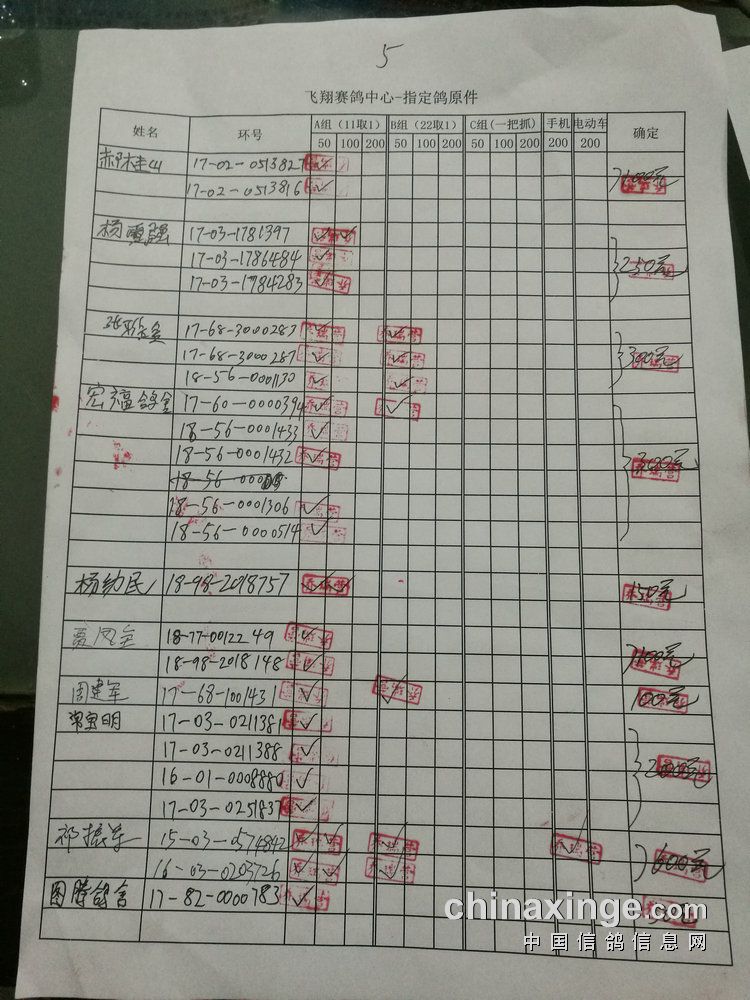 5
飞翔赛鸽中心-指定鸽原件
姓名 环号 A组（11取1） B组（22取1） C组(一把抓) 手机 电动车 确定
50 100 200 50 100 200 50 100 200 200 200
17-02-0513827
17-02-0513816
杨 17-03-1781397
17-03-1786484
17-03-1784283 250元
17-68-3000283
17-68-3000287 300元
18-56-0001130
宏福鸽舍 17-60-0000394
18-56-0001433
18-56-0001432 300元
18-56-0001306
18-56-0000514
杨幼民 18-98-2018757 150元
18-77-0012249
18-98-2018148 100元
周建军 17-68-1001431 100元
17-03-0211381
17-03-0211388
16-01-0008880
17-03-0251837
祁振军 15-03-0574842
16-03-0203726 600元
图腾鸽舍 17-82-0000783 50元
chinaxinge.com
中国信鸽信息网